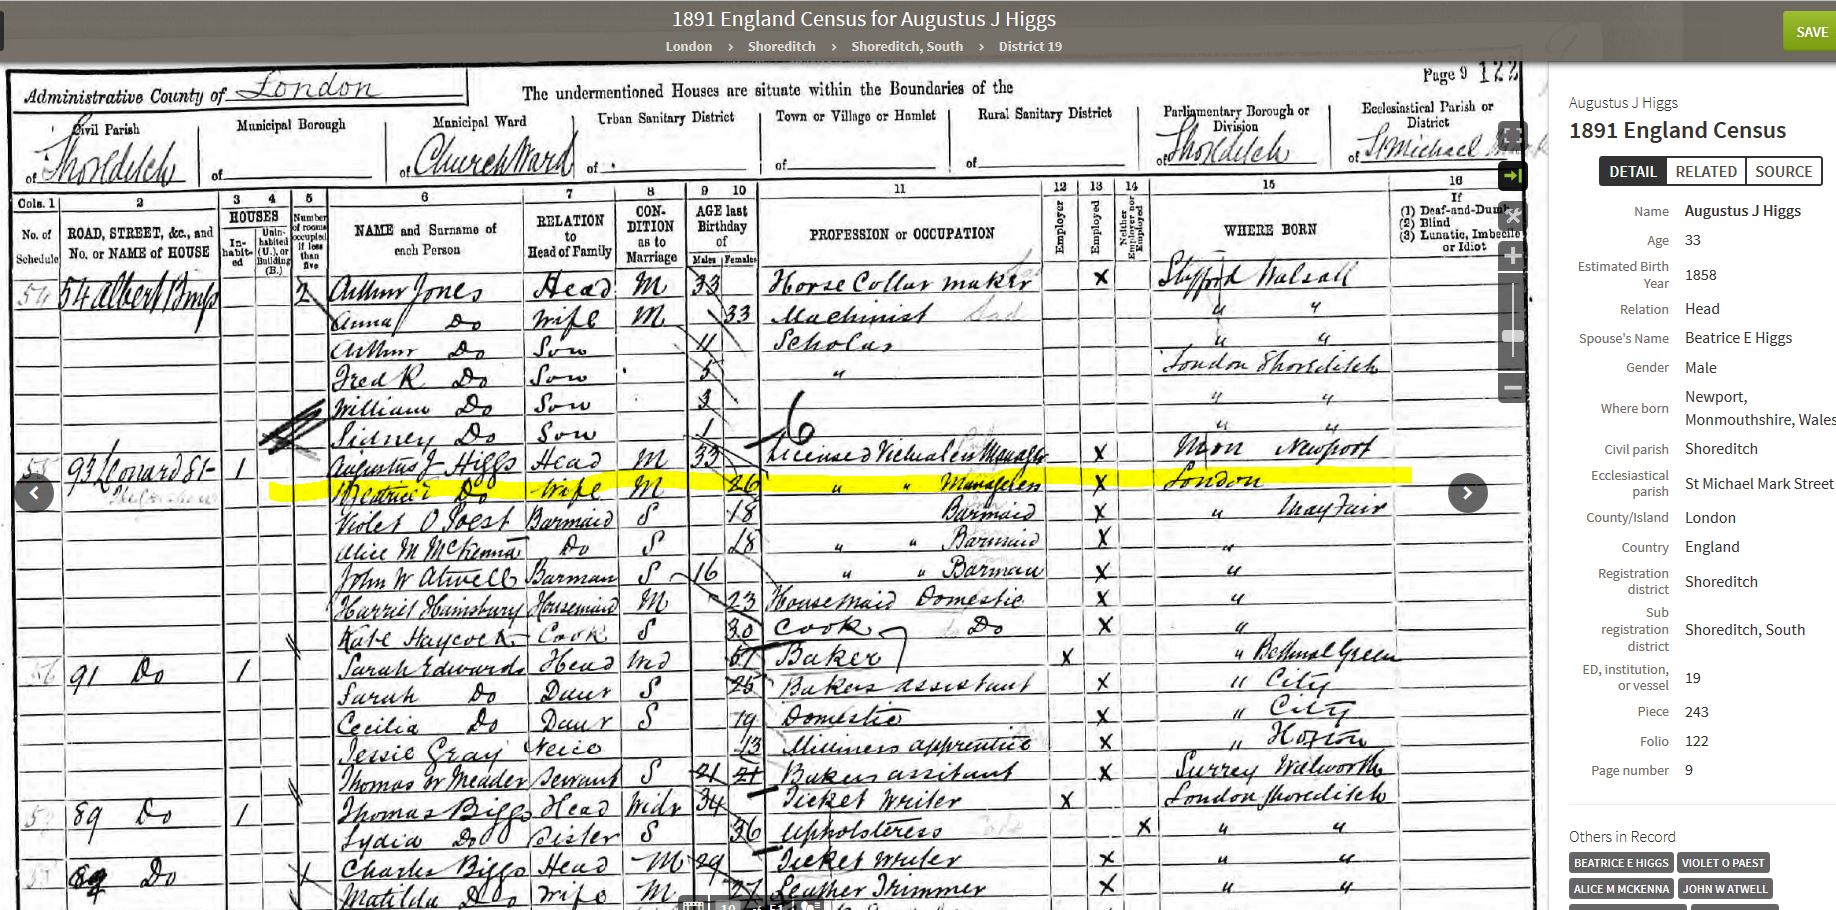 1891 England Census for Augustus J Higgs
London › Shoreditch › Shoreditch, South › District 19
SAVE
Page 9 122
Administrative County of London
The undermentioned Houses are situate within the Boundaries of the
Civil Parish of Shoreditch
Municipal Borough of
Municipal Ward of Church Ward
Urban Sanitary District of
Town or Village or Hamlet of
Rural Sanitary District of
Parliamentary Borough or Division of Shoreditch
Ecclesiastical Parish or District of St Michael
Cols. 1 2 3 4 5 6 7 8 9 10 11 12 13 14 15 16
No. of Schedule
ROAD, STREET, &c., and No. or NAME of HOUSE
HOUSES
In-habit-ed
Unin-habited (U.), or Building (B.)
Number of rooms occupied if less than five
NAME and Surname of each Person
RELATION to Head of Family
CON-DITION as to Marriage
AGE last Birthday of
Males Females
PROFESSION or OCCUPATION
Employer
Employed
Neither Employer nor Employed
WHERE BORN
If (1) Deaf-and-Dumb (2) Blind (3) Lunatic, Imbecile or Idiot
54 54 Albert 2 Arthur Jones Head M 33 Horse Collar maker X Stafford Walsall
Anna Do Wife M 33 Machinist " "
Arthur Do Son 11 Scholar " "
Fred R Do Son 5 " London Shoreditch
William Do Son 3 " "
Sidney Do Son 1 " "
6
93 Leonard St 1 Augustus J Higgs Head M 33 Licensed Victualers Manager X Mon Newport
Beatrice E Do Wife M 26 " " Manageress X London
Violet O Poest Barmaid S 18 Barmaid X " Mayfair
Alice M McKenna Do S 18 " " Barmaid X "
John W Atwell Barman S 16 " " Barman X "
Harriet Hainsbury Housemaid M 23 Housemaid Domestic X "
Kate Haycock Cook S 30 Cook Do X "
56 91 Do 1 Sarah Edwards Head Wid 51 Baker X " Bethnal Green
Sarah Do Daur S 25 Bakers assistant X " City
Cecilia Do Daur S 19 Domestic X " City
Jessie Gray Neice 13 Milliners apprentice X " Hoxton
Thomas W Meader Servant S 21 21 Bakers assitant X Surrey Walworth
89 Do 1 Thomas Biggs Head Widr 34 Ticket Writer X London Shoreditch
Lydia Do Sister S 36 Upholsteress X " "
89 Do Charles Biggs Head M 29 Ticket Writer X " "
Matilda Do Wife M 27 Leather Trimmer X " "
Augustus J Higgs
1891 England Census
DETAIL RELATED SOURCE
Name Augustus J Higgs
Age 33
Estimated Birth Year 1858
Relation Head
Spouse's Name Beatrice E Higgs
Gender Male
Where born Newport, Monmouthshire, Wales
Civil parish Shoreditch
Ecclesiastical parish St Michael Mark Street
County/Island London
Country England
Registration district Shoreditch
Sub registration district Shoreditch, South
ED, institution, or vessel 19
Piece 243
Folio 122
Page number 9
Others in Record
BEATRICE E HIGGS VIOLET O PAEST
ALICE M MCKENNA JOHN W ATWELL